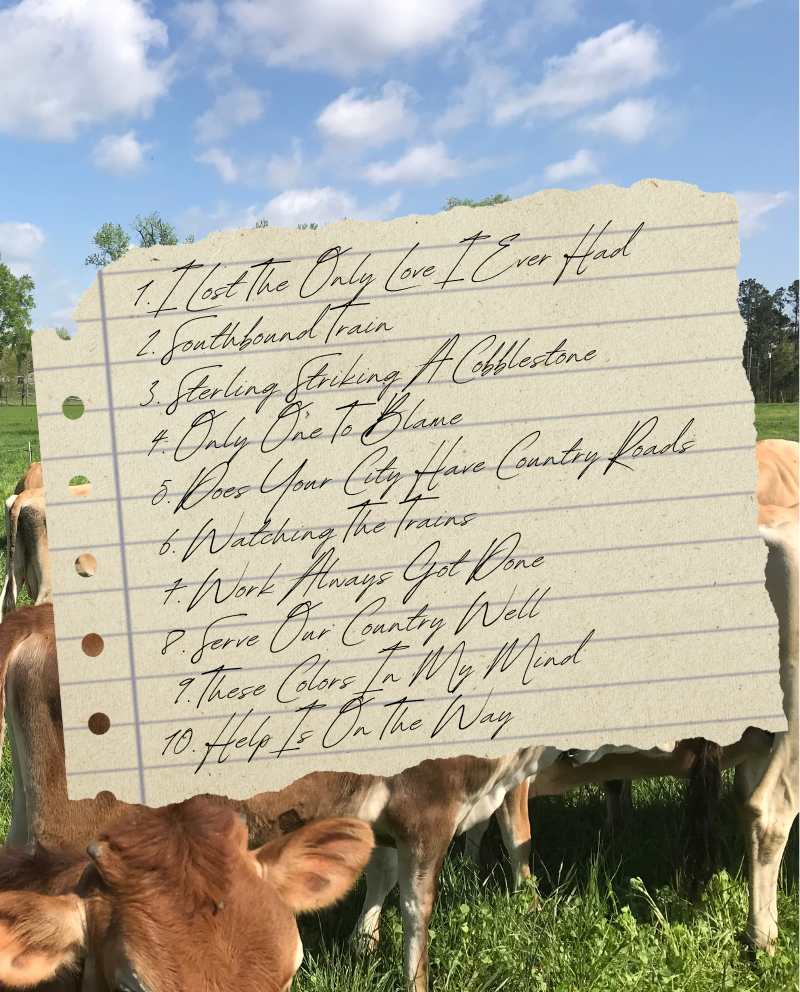 1. I Lost The Only Love I Ever Had
2. Southbound Train
3. Sterling Striking A Cobblestone
4. Only One To Blame
5. Does Your City Have Country Roads
6. Watching The Trains
7. Work Always Got Done
8. Serve Our Country Well
9. These Colors In My Mind
10. Help Is On The Way